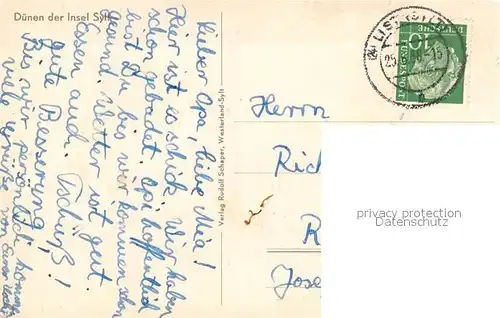 Dünen der Insel Sylt
Lieber Opa, liebe Mia!
Hier ist es schick. Wir haben
schon gebadet. Opi hoffentlich
gesund. Du bis wir kommen dan
Gesund. Wetter ist gut.
Essen auch. Tschüß!
gute Besserung!
Bis wir persönlich kommen
viele Grüße von Eurer
Verlag Rudolf Schaper, Westerland-Sylt
LIST (SYLT)
10
DEUTSCHE BUNDESPOST
Herrn
Rich
R
Jose
privacy protection
Datenschutz